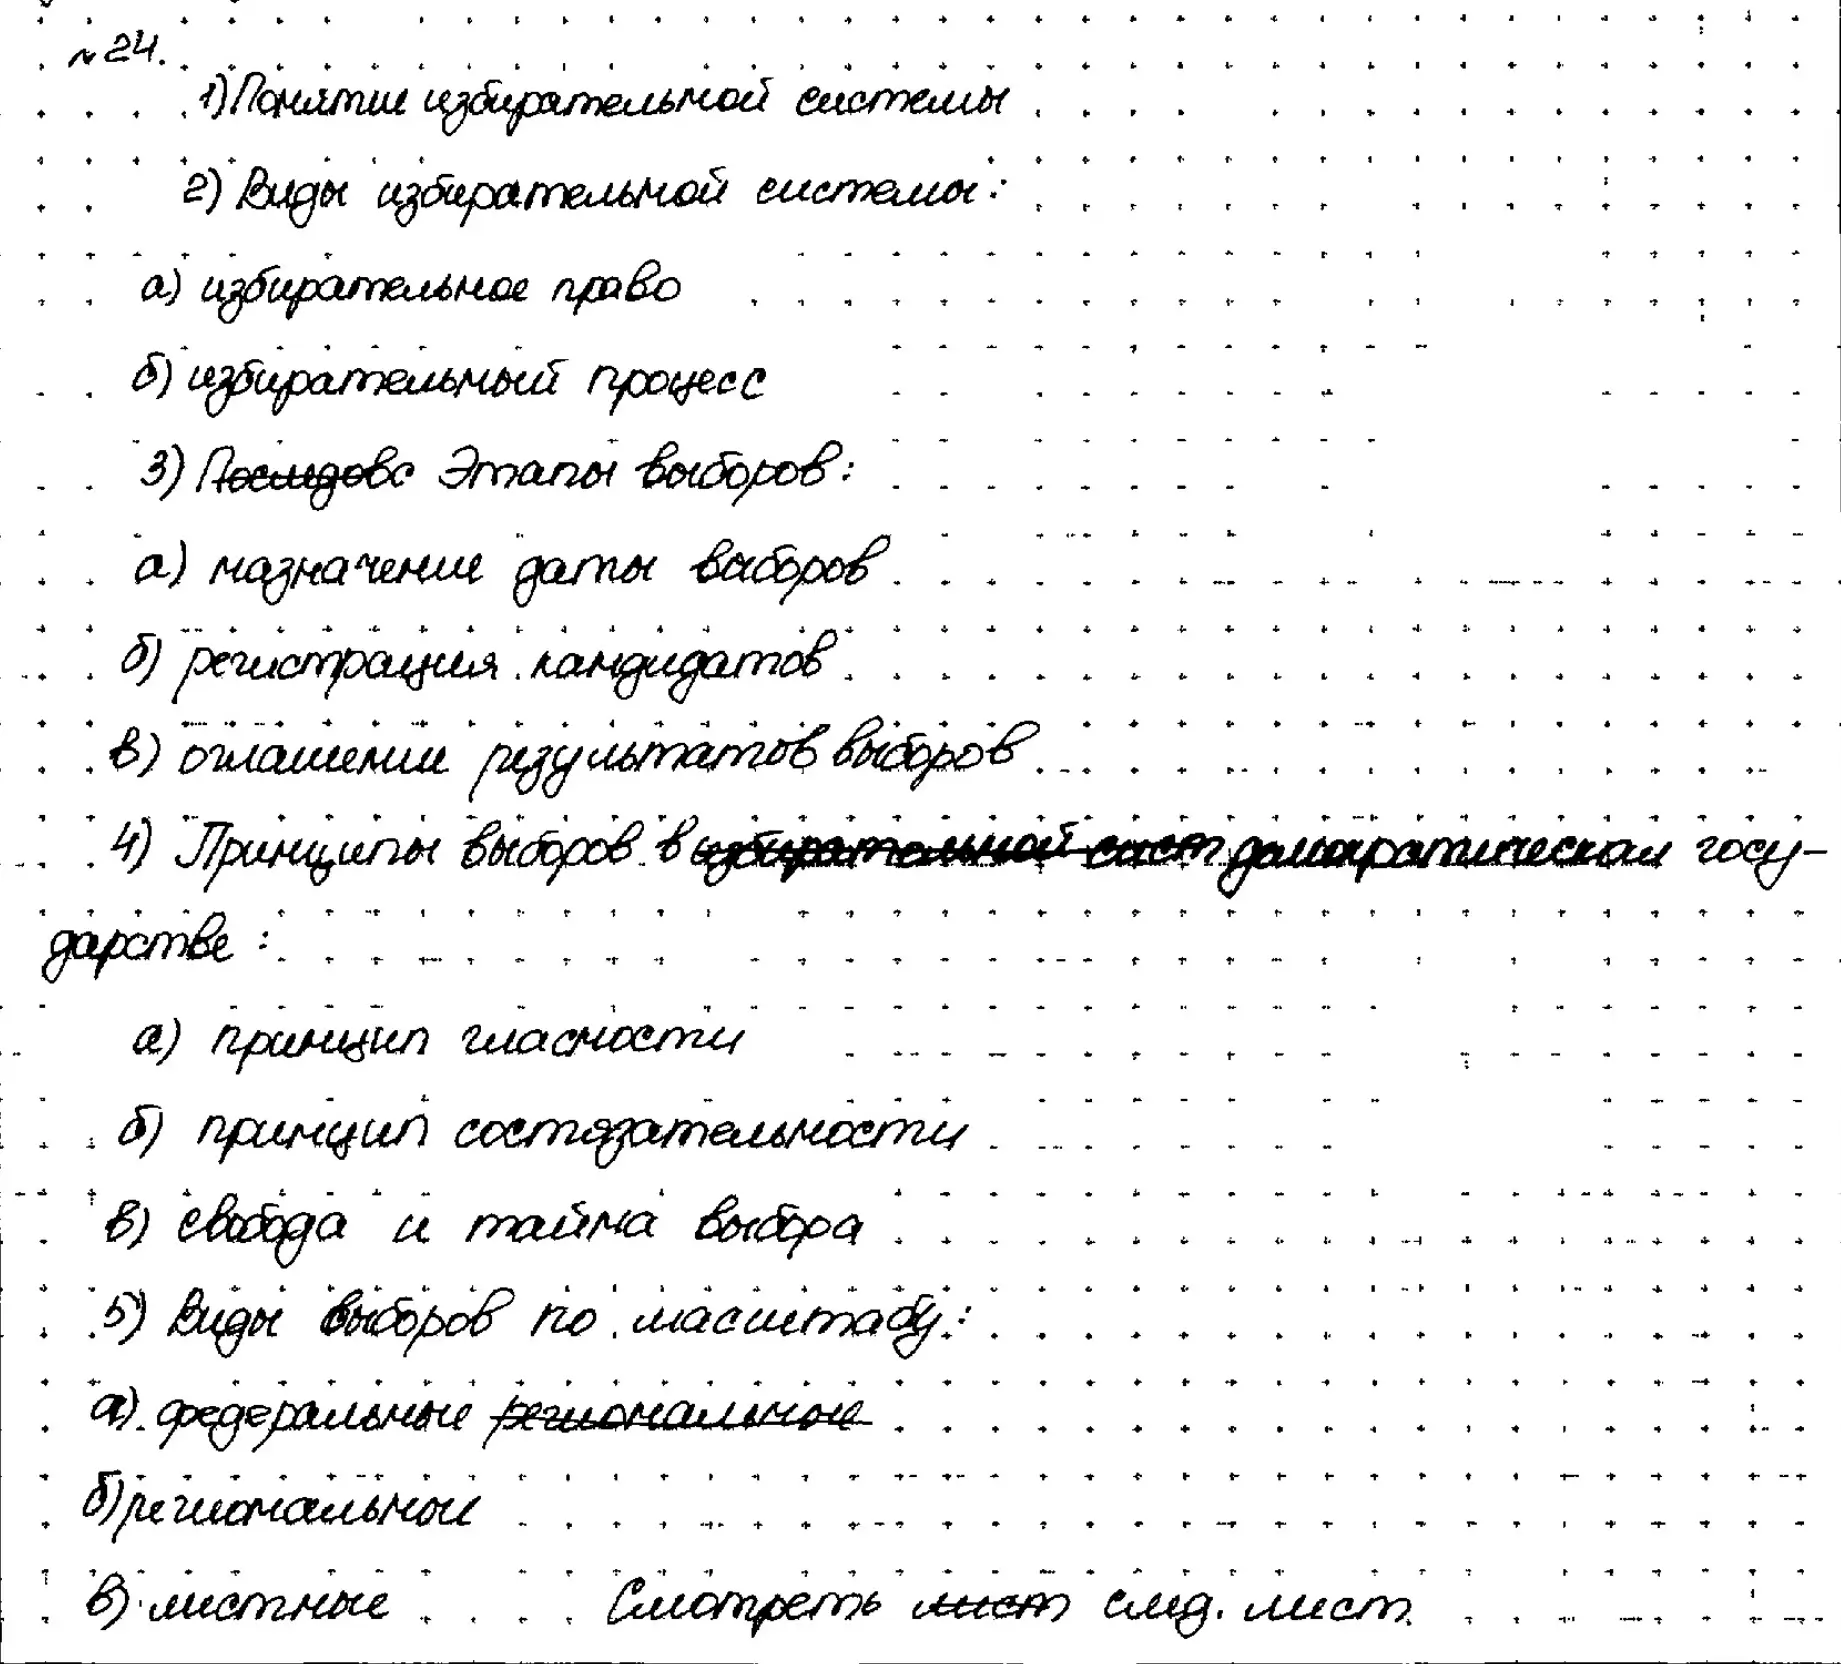 №24.
1) Понятие избирательной системы
2) Виды избирательной системы:
а) избирательное право
б) избирательный процесс
3) Последовс Этапы выборов:
а) назначение даты выборов
б) регистрация кандидатов
в) оглашение результатов выборов
4) Принципы выборов в избирательной сист демократическом госу-
дарстве:
а) принцип гласности
б) принцип состязательности
в) свобода и тайна выбора
5) Виды выборов по масштабу:
а) федеральные региональные
б) региональные
в) местные Смотреть лист след. лист